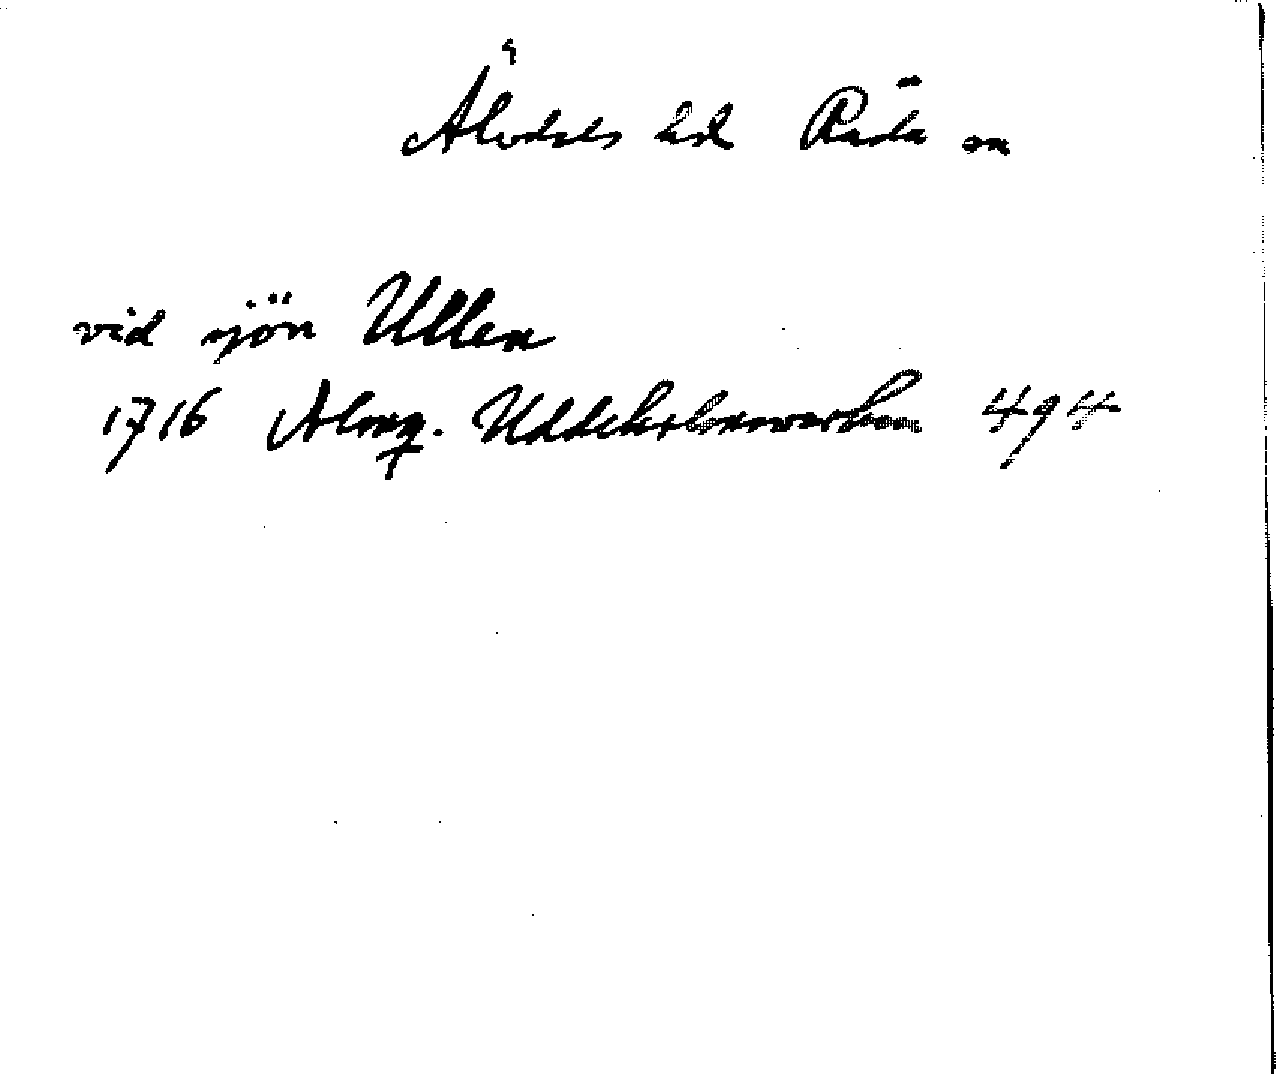 Älvdals hd Råda sn
vid sjön Ullen
1716 Almq. Uddeholmsverken 494